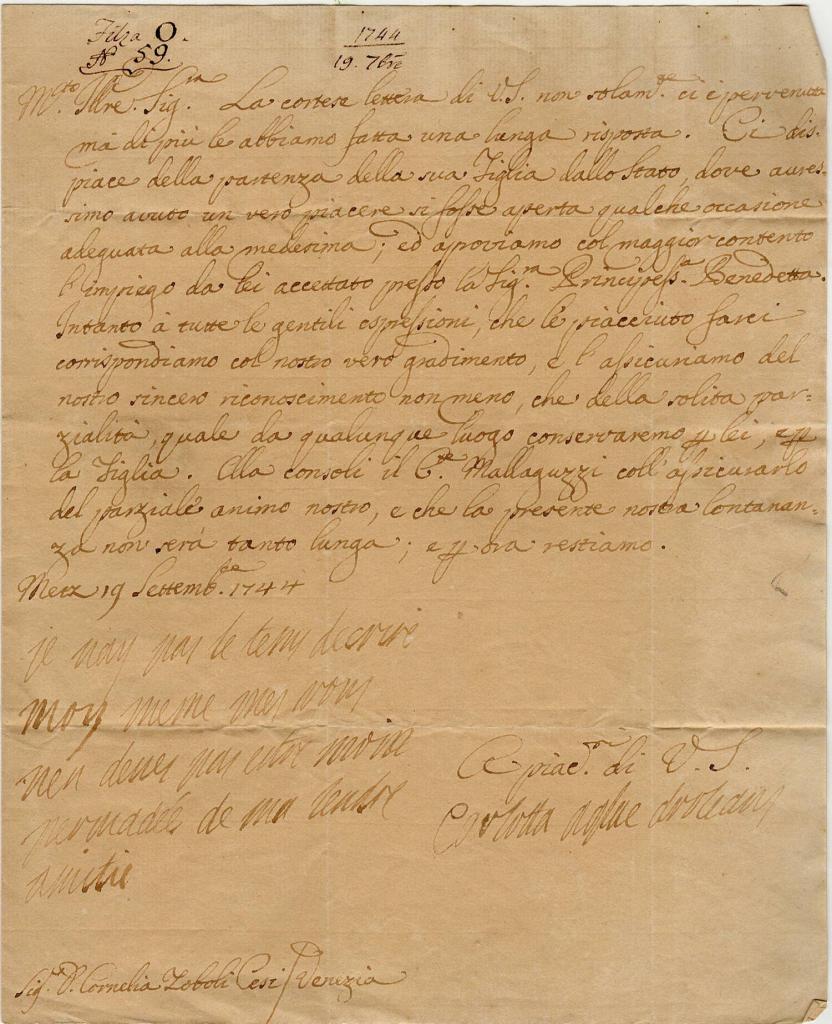 Filza O.
N.° 59.
1744
19. 7bre
M.to Ill.re Sig.ra La cortese lettera di V.S. non solam.te ci è pervenuta
ma di più le abbiamo fatta una lunga risposta. Ci dis-
piace della partenza della sua Figlia dallo Stato, dove aures-
simo avuto un vero piacere si fosse aperta qualche occasione
adeguata alla medesima; ed aproviamo col maggior contento
l'impiego da lei accettato presso la Sig.ra Principess.a Benedetta.
Intanto à tutte le gentili espressioni, che le è piacciuto farci
corrispondiamo col nostro vero gradimento, e l'assicuriamo del
nostro sincero riconoscimento non meno, che della solita par=
zialità, quale da qualunque luogo conservaremo p lei, e p
la Figlia. Ella consoli il C.te Mallaguzzi coll'assicurarlo
del parziale animo nostro, e che la presente nostra lontanan=
za non serà tanto lunga; e p ora restiamo.
Metz 19 Settemb.re 1744
je nay pas le tems decrire
moy meme mes vous
nen deves pas estre moins
persuadée de ma tendre
amitie
A piac.ri di V.S.
Carlotta Aglae dorleans
Sig.ra D. Cornelia Zoboli Cesi / Venezia